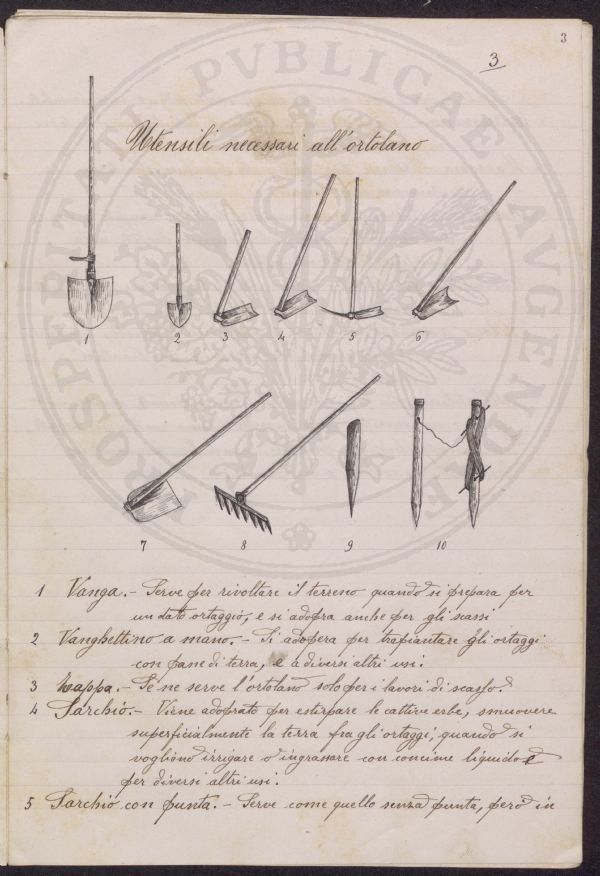 3
3
Utensili necessari all'ortolano
1 2 3 4 5 6
7 8 9 10
1 Vanga. - Serve per rivoltare il terreno quando si prepara per
un dato ortaggio, e si adopra anche per gli scassi
2 Vanghettino a mano. - Si adopera per trapiantare gli ortaggi
con pane di terra, e a diversi altri usi.
3 Zappa. - Se ne serve l'ortolano solo per i lavori di scasso.
4 Sarchio. - Viene adoprato per estirpare le cattive erbe, smuovere
superficialmente la terra fra gli ortaggi, quando si
vogliono irrigare o ingrassare con concime liquido e
per diversi altri usi.
5 Sarchio con punta. - Serve come quello senza punta, però in
PROSPERITATI PVBLICAE AVGENDAE